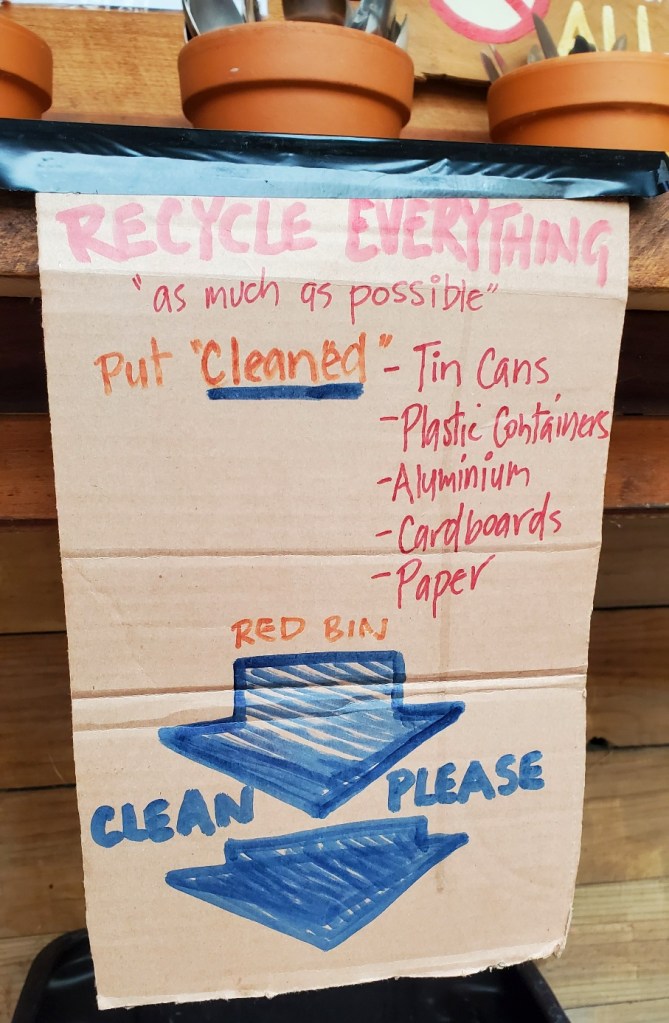 ALL
RECYCLE EVERYTHING
"as much as possible"
Put "Cleaned" - Tin Cans
- Plastic Containers
- Aluminium
- Cardboards
- Paper
RED BIN
CLEAN PLEASE